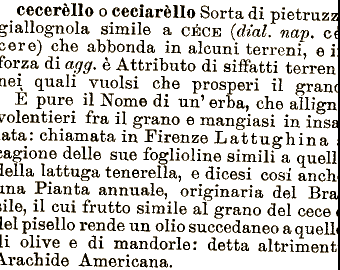 cecerèllo o ceciarèllo Sorta di pietruzz
giallognola simile a CÉCE (dial. nap. ce
cere) che abbonda in alcuni terreni, e i
forza di agg. è Attributo di siffatti terren
nei quali vuolsi che prosperi il grano
È pure il Nome di un' erba, che allign
volentieri fra il grano e mangiasi in insa
lata: chiamata in Firenze Lattughina
cagione delle sue foglioline simili a quell
della lattuga tenerella, e dicesi cosí anch
una Pianta annuale, originaria del Bra
sile, il cui frutto simile al grano del cece
del pisello rende un olio succedaneo a quell
di olive e di mandorle: detta altriment
Arachide Americana.